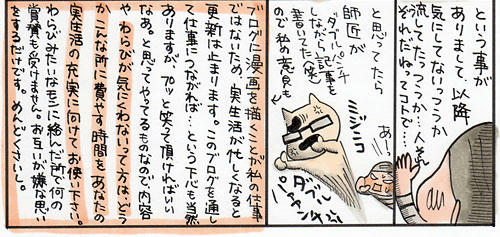 という事が
ありまして、以降
気にしてないっつうか
流してたっつうか…
ってコトで
と思ってたら
師匠が
ダブルパンチ
ながら記事を
書いてた(笑)
ので私の意見も
あ!
ミジンコ
ダブル
パァンチッ
ブログに漫画を描くことが私の仕事
ではないため、実生活が忙しくなると
更新は止まります。このブログを通し
て仕事につながれば…という下心も当然
ありますが、プッと笑って頂ければいい
なあ。と思ってやってるものなので内容
やわらびが気にくわないって方は…どう
かこんな所に費やす時間をあなたの
実生活の充実に向けてお使い下さい。
わらびみたいなモンに絡んだ所で何の
賞賛も受けません。お互いが嫌な思い
をするだけです。めんどくさいし。